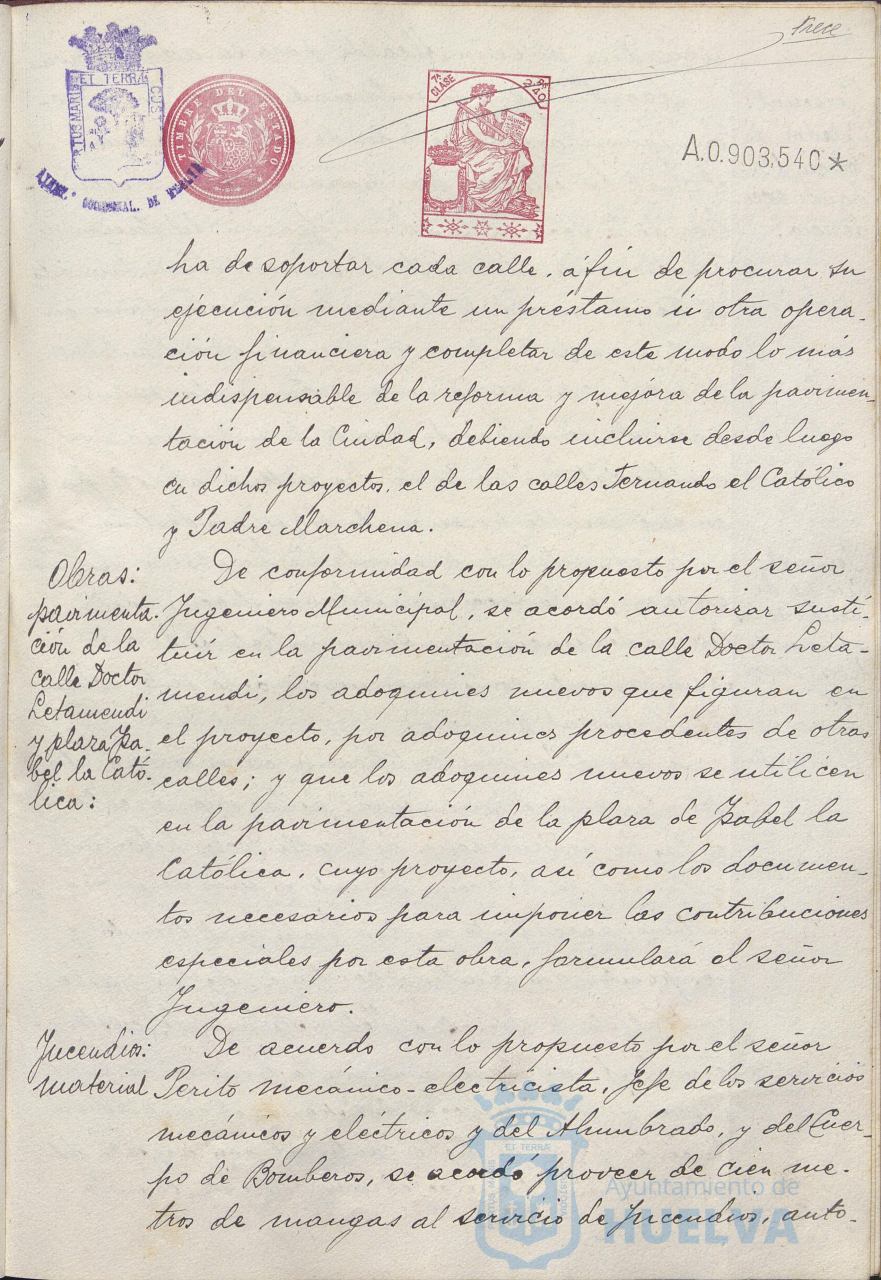 trece.
ET TERRÆ CUS
PORTUS MARIS
AYUNT. CONSTITUCIONAL. DE HUELVA
TIMBRE DEL ESTADO
7ª CLASE
2'40
A.0.903,540*
ha de soportar cada calle, á fin de procurar su
ejecución mediante un préstamo ú otra opera-
ción financiera y completar de este modo lo más
indispensable de la reforma y mejora de la pavimen-
tación de la Ciudad, debiendo incluirse desde luego
en dichos proyectos, el de las calles Fernando el Católico
y Padre Marchena.
Obras:
pavimenta-
ción de la
calle Doctor
Letamendi
y plaza Isa-
bel la Cató-
lica:
De conformidad con lo propuesto por el señor
Ingeniero Municipal, se acordó autorizar susti-
tuir en la pavimentación de la calle Doctor Leta-
mendi, los adoquines nuevos que figuran en
el proyecto, por adoquines procedentes de otras
calles; y que los adoquines nuevos se utilicen
en la pavimentación de la plaza de Isabel la
Católica, cuyo proyecto, así como los documen-
tos necesarios para imponer las contribuciones
especiales por esta obra, formulará el señor
Ingeniero.
Incendios:
material
De acuerdo con lo propuesto por el señor
Perito mecánico-electricista, Jefe de los servicios
mecánicos y eléctricos y del Alumbrado, y del Cuer-
po de Bomberos, se acordó proveer de cien me-
tros de mangas al servicio de Incendios, auto-
ET TERRÆ
Ayuntamiento de
HUELVA